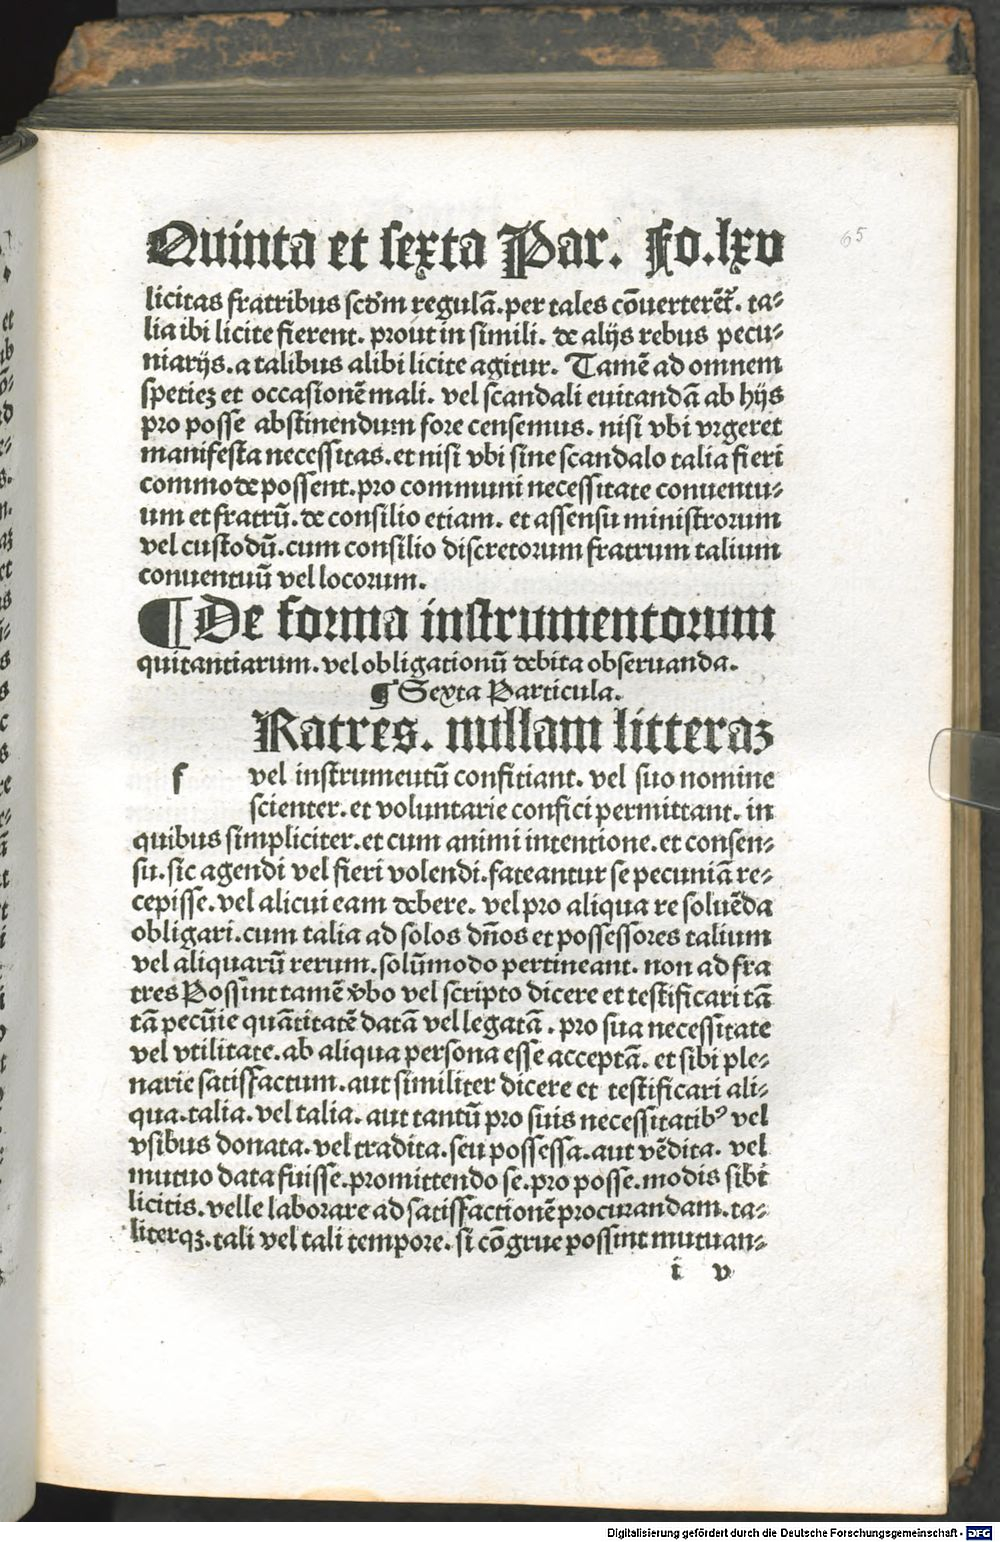 Quinta et sexta Par. Fo.lxv
65
licitas fratribus scd̄m regulā.per tales cōuerterēt̄. ta⸗
lia ibi licite fierent. prout in simili. de alijs rebus pecu⸗
niarijs.a talibus alibi licite agitur. Tamē ad omnem
spetieꝫ et occasionē mali. vel scandali euitandā ab hijs
pro posse abstinendum fore censemus. nisi vbi vrgeret
manifesta necessitas.et nisi vbi sine scandalo talia fieri
commode possent.pro communi necessitate conuentu⸗
um et fratrū. de consilio etiam. et assensu ministrorum
vel custodū.cum consilio discretorum fratrum talium
conuentuū vel locorum.
¶De forma instrumentorum
quitantiarum.vel obligationū debita obseruanda.
¶Sexta Particula.
Ratres. nullam litteraꝫ
f vel instrumentū confitiant. vel suo nomine
scienter.et voluntarie confici permittant. in
quibus simpliciter.et cum animi intentione.et consen⸗
su.sic agendi vel fieri volendi.fateantur se pecuniā re⸗
cepisse.vel alicui eam debere. vel pro aliqua re soluēda
obligari.cum talia ad solos dn̄os et possessores talium
vel aliquarū rerum.solūmodo pertineant. non ad fra
tres Possint tamē v̄bo vel scripto dicere et testificari tā
tā pecūie quātitatē datā vel legatā. pro sua necessitate
vel vtilitate.ab aliqua persona esse acceptā. et sibi ple⸗
narie satisfactum.aut similiter dicere et testificari ali⸗
qua.talia.vel talia. aut tantū pro suis necessitatibꝰ vel
vsibus donata.vel tradita.seu possessa.aut vēdita. vel
mutuo data fuisse.promittendo se.pro posse.modis sibi
licitis.velle laborare ad satisfactionē procurandam.ta⸗
literqꝫ.tali vel tali tempore.si cōgrue possint mutuan⸗
i v
Digitalisierung gefördert durch die Deutsche Forschungsgemeinschaft - DFG